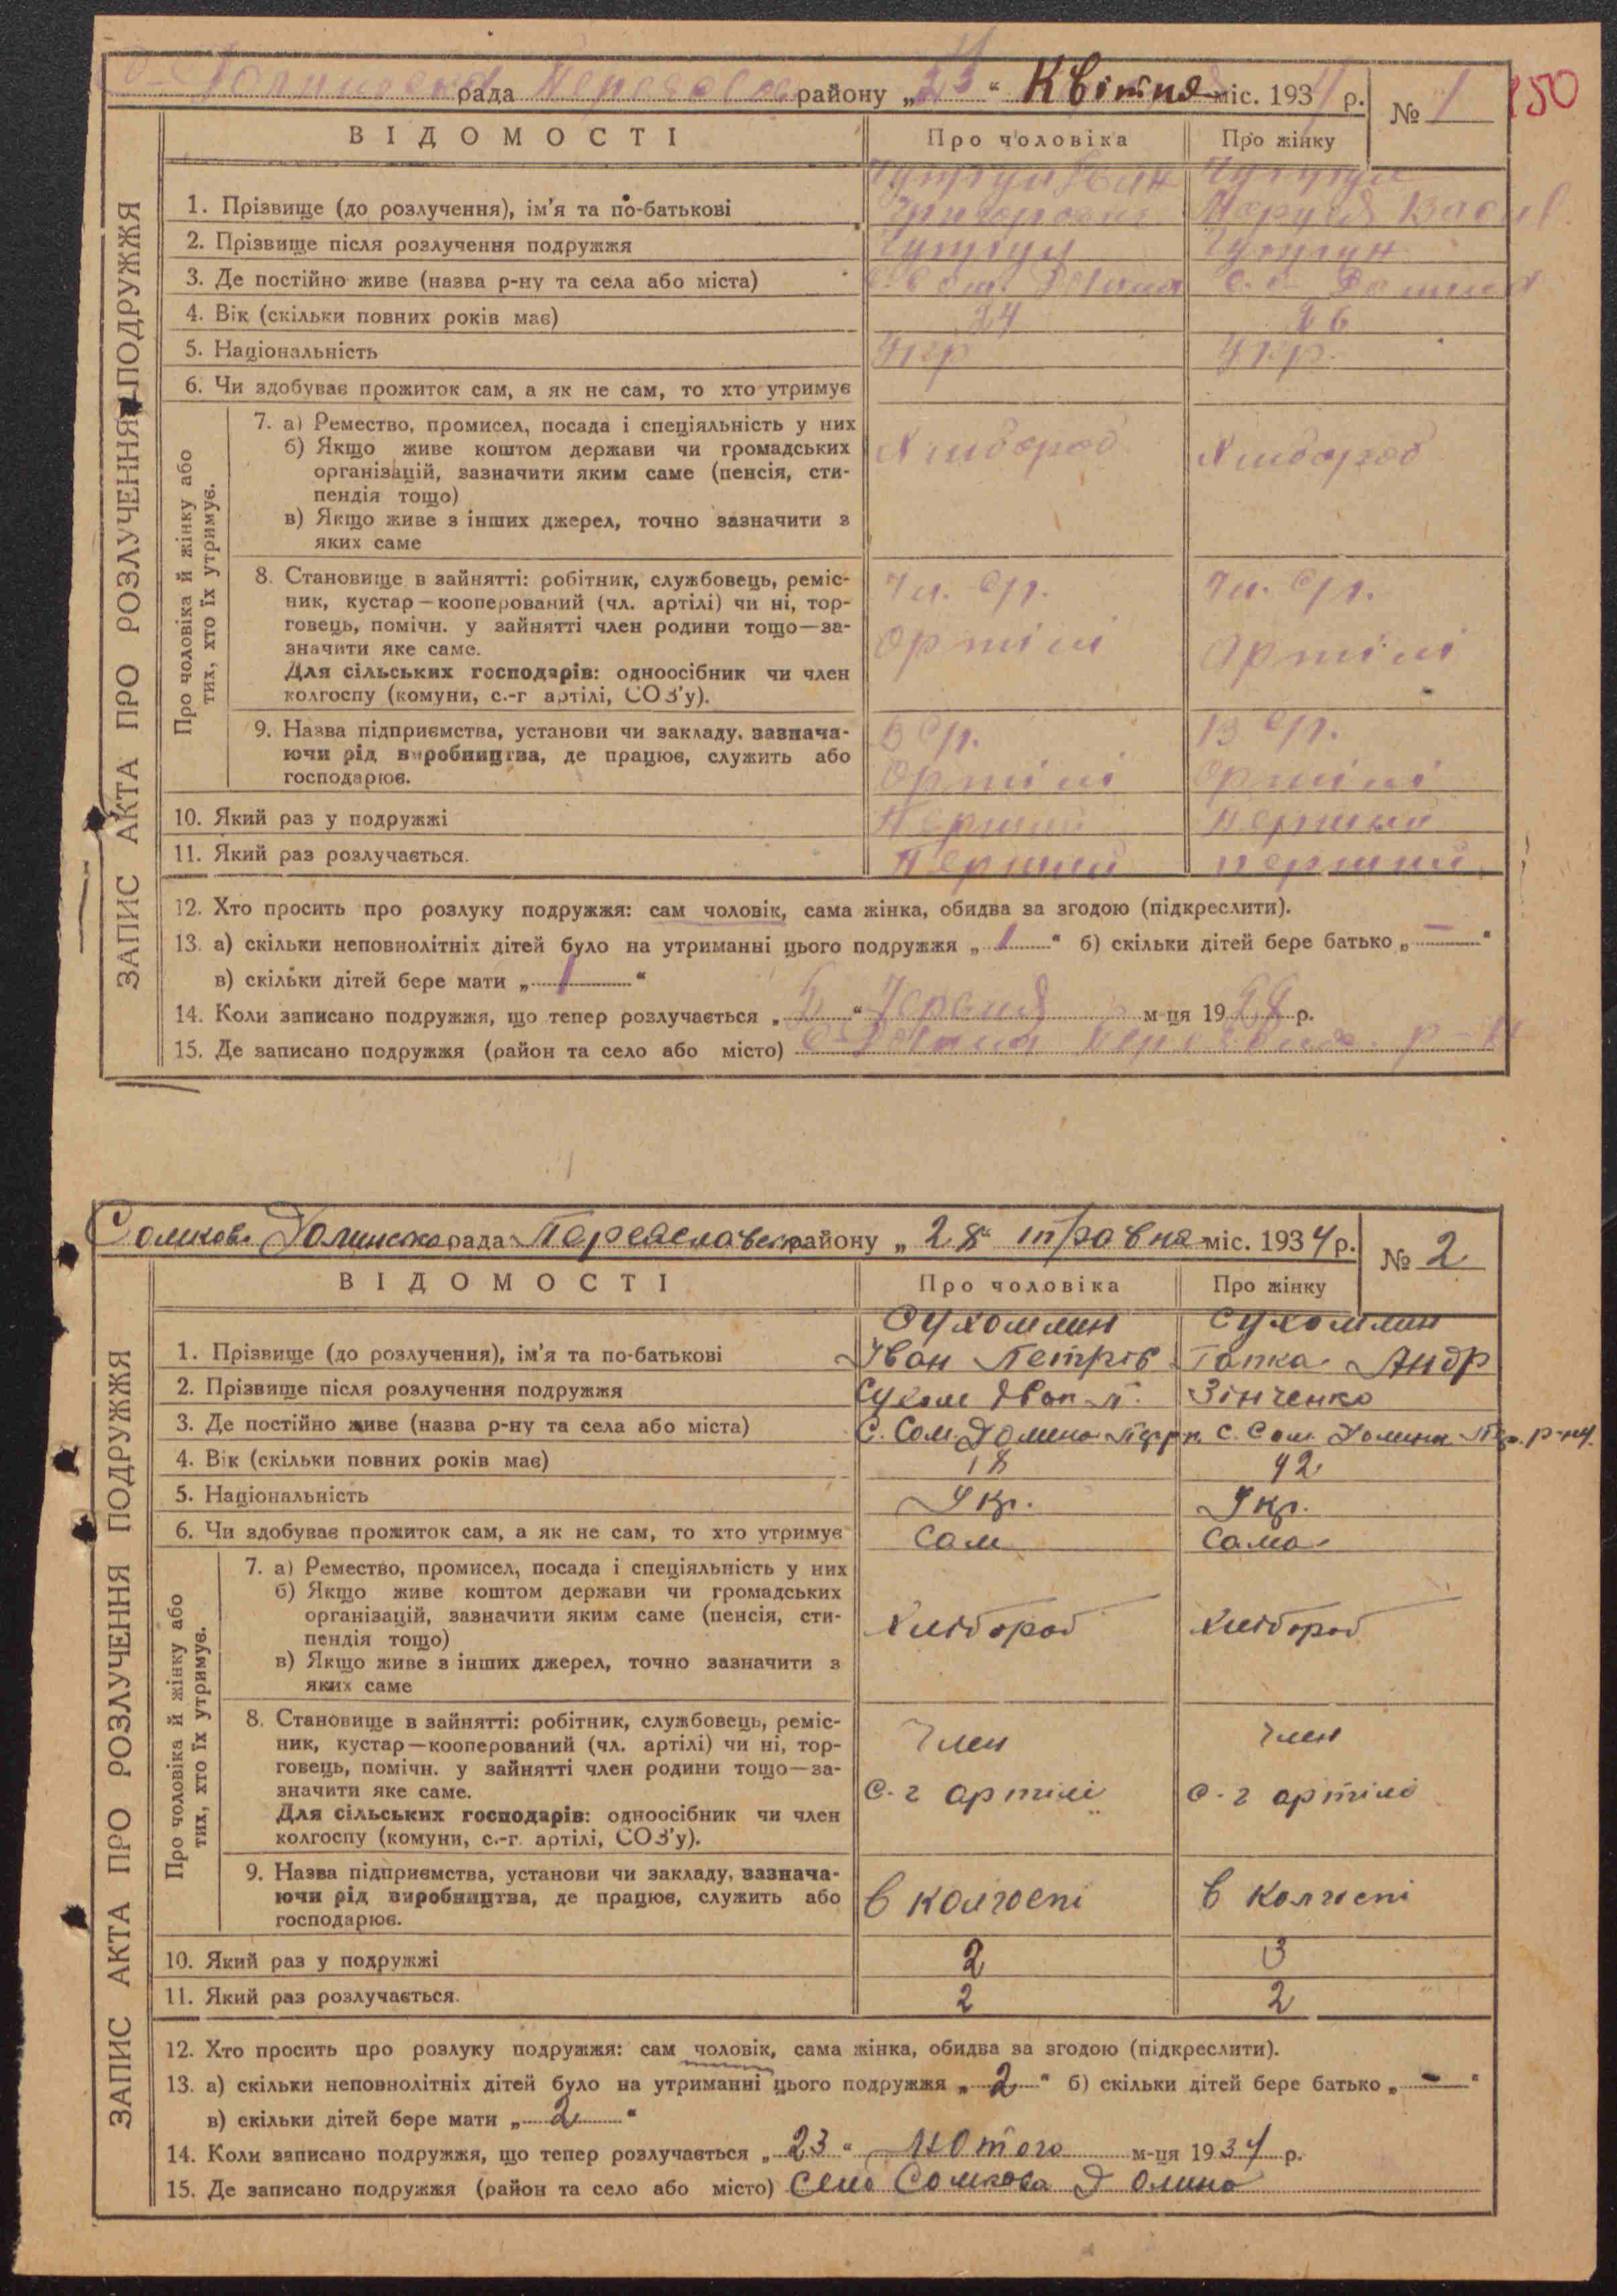 рада району „23“ Квітня міс. 1934 р. № 1 150
ВІДОМОСТІ Про чоловіка Про жінку
1. Прізвище (до розлучення), ім'я та по-батькові
2. Прізвище після розлучення подружжя
3. Де постійно живе (назва р-ну та села або міста)
4. Вік (скільки повних років має) 24 26
5. Національність Укр Укр.
6. Чи здобуває прожиток сам, а як не сам, то хто утримує
Про чоловіка й жінку або
тих, хто їх утримує.
7. а) Ремество, промисел, посада і спеціяльність у них
б) Якщо живе коштом держави чи громадських Хлібороб Хлібороб
організацій, зазначити яким саме (пенсія, сти-
пендія тощо)
в) Якщо живе з інших джерел, точно зазначити з
яких саме
8. Становище в зайнятті: робітник, службовець, реміс-
ник, кустар—кооперований (чл. артілі) чи ні, тор-
говець, помічн. у зайнятті член родини тощо—за-
значити яке саме. артілі артілі
Для сільських господарів: одноосібник чи член
колгоспу (комуни, с.-г артілі, СОЗ'у).
9. Назва підприємства, установи чи закладу, зазнача-
ючи рід виробництва, де працює, служить або
господарює. артілі артілі
10. Який раз у подружжі Перший Перший
11. Який раз розлучається. Перший перший
12. Хто просить про розлуку подружжя: сам чоловік, сама жінка, обидва за згодою (підкреслити).
13. а) скільки неповнолітніх дітей було на утриманні цього подружжя „1“ б) скільки дітей бере батько „—“
в) скільки дітей бере мати „1“
14. Коли записано подружжя, що тепер розлучається Червня м-ця 1928 р.
15. Де записано подружжя (район та село або місто)
ЗАПИС АКТА ПРО РОЗЛУЧЕННЯ ПОДРУЖЖЯ
Сомково Долинська рада Переяславськ району „28“ травня міс. 1934 р. № 2
ВІДОМОСТІ Про чоловіка Про жінку
Сухомлин Сухомлин
1. Прізвище (до розлучення), ім'я та по-батькові Іван Петрів Гапка Андр
2. Прізвище після розлучення подружжя Зінченко
3. Де постійно живе (назва р-ну та села або міста) С. Сом. Долина С. Сом. Долина
4. Вік (скільки повних років має) 42
5. Національність Укр. Укр.
6. Чи здобуває прожиток сам, а як не сам, то хто утримує Сам Сама
Про чоловіка й жінку або
тих, хто їх утримує.
7. а) Ремество, промисел, посада і спеціяльність у них
б) Якщо живе коштом держави чи громадських
організацій, зазначити яким саме (пенсія, сти- Хлібороб Хлібороб
пендія тощо)
в) Якщо живе з інших джерел, точно зазначити з
яких саме
8. Становище в зайнятті: робітник, службовець, реміс-
ник, кустар—кооперований (чл. артілі) чи ні, тор- Член Член
говець, помічн. у зайнятті член родини тощо—за-
значити яке саме. с-г артілі с-г артілі
Для сільських господарів: одноосібник чи член
колгоспу (комуни, с.-г. артілі, СОЗ'у).
9. Назва підприємства, установи чи закладу, зазнача-
ючи рід виробництва, де працює, служить або в колгоспі в колгоспі
господарює.
10. Який раз у подружжі 2 3
11. Який раз розлучається. 2 2
12. Хто просить про розлуку подружжя: сам чоловік, сама жінка, обидва за згодою (підкреслити).
13. а) скільки неповнолітніх дітей було на утриманні цього подружжя „2“ б) скільки дітей бере батько „-“
в) скільки дітей бере мати „2“
14. Коли записано подружжя, що тепер розлучається „23“ Лютого м-ця 1934 р.
15. Де записано подружжя (район та село або місто) Село Сомкова Долина
ЗАПИС АКТА ПРО РОЗЛУЧЕННЯ ПОДРУЖЖЯ